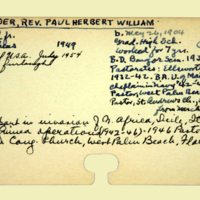 DER, REV. PAUL HERBERT WILLIAM
jr. b. May 24, 1904
1949 Grad. High Sch.
of U.S.A. July 1954 worked for 7 yrs.
B.D. Bangor Sem. 193
Pastorates: Ellsworth
1932-42. BA. U. of M
chaplain in navy
Pastor, West Palm Be
Pastor, St. Andrew's Ch.
part in invasion of N. Africa, Sicily, It
operations (1942-46); 1946 Pasto
Cong. Church, West Palm Beach, Fla